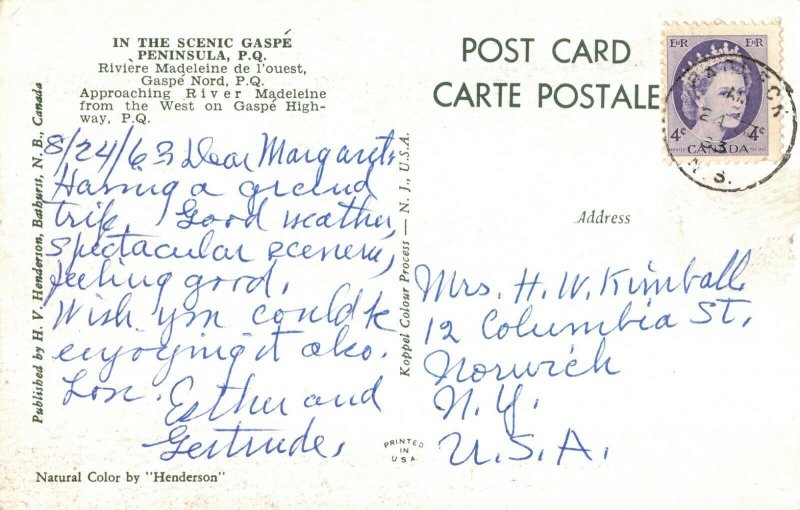 IN THE SCENIC GASPÉ
PENINSULA, P.Q.
Rivière Madeleine de l'ouest,
Gaspé Nord, P.Q.
Approaching River Madeleine
from the West on Gaspé High-
way, P.Q.
8/24/63 Dear Margaret:
Having a grand
trip. Good weather,
spectacular scenery,
feeling good.
Wish you could be
enjoying it also.
Love.
Esther and
Gertrude.
Natural Color by "Henderson"
Published by H. V. Henderson, Bathurst, N. B., Canada
Koppel Colour Process — N. J., U.S.A.
POST CARD
CARTE POSTALE
EIIR EIIR
4¢ 4¢
CANADA
BADDECK
AM
24
63
N. S.
Address
Mrs. H. W. Kimball
12 Columbia St.
Norwich
N.Y.
U.S.A.
PRINTED
IN
U.S.A.